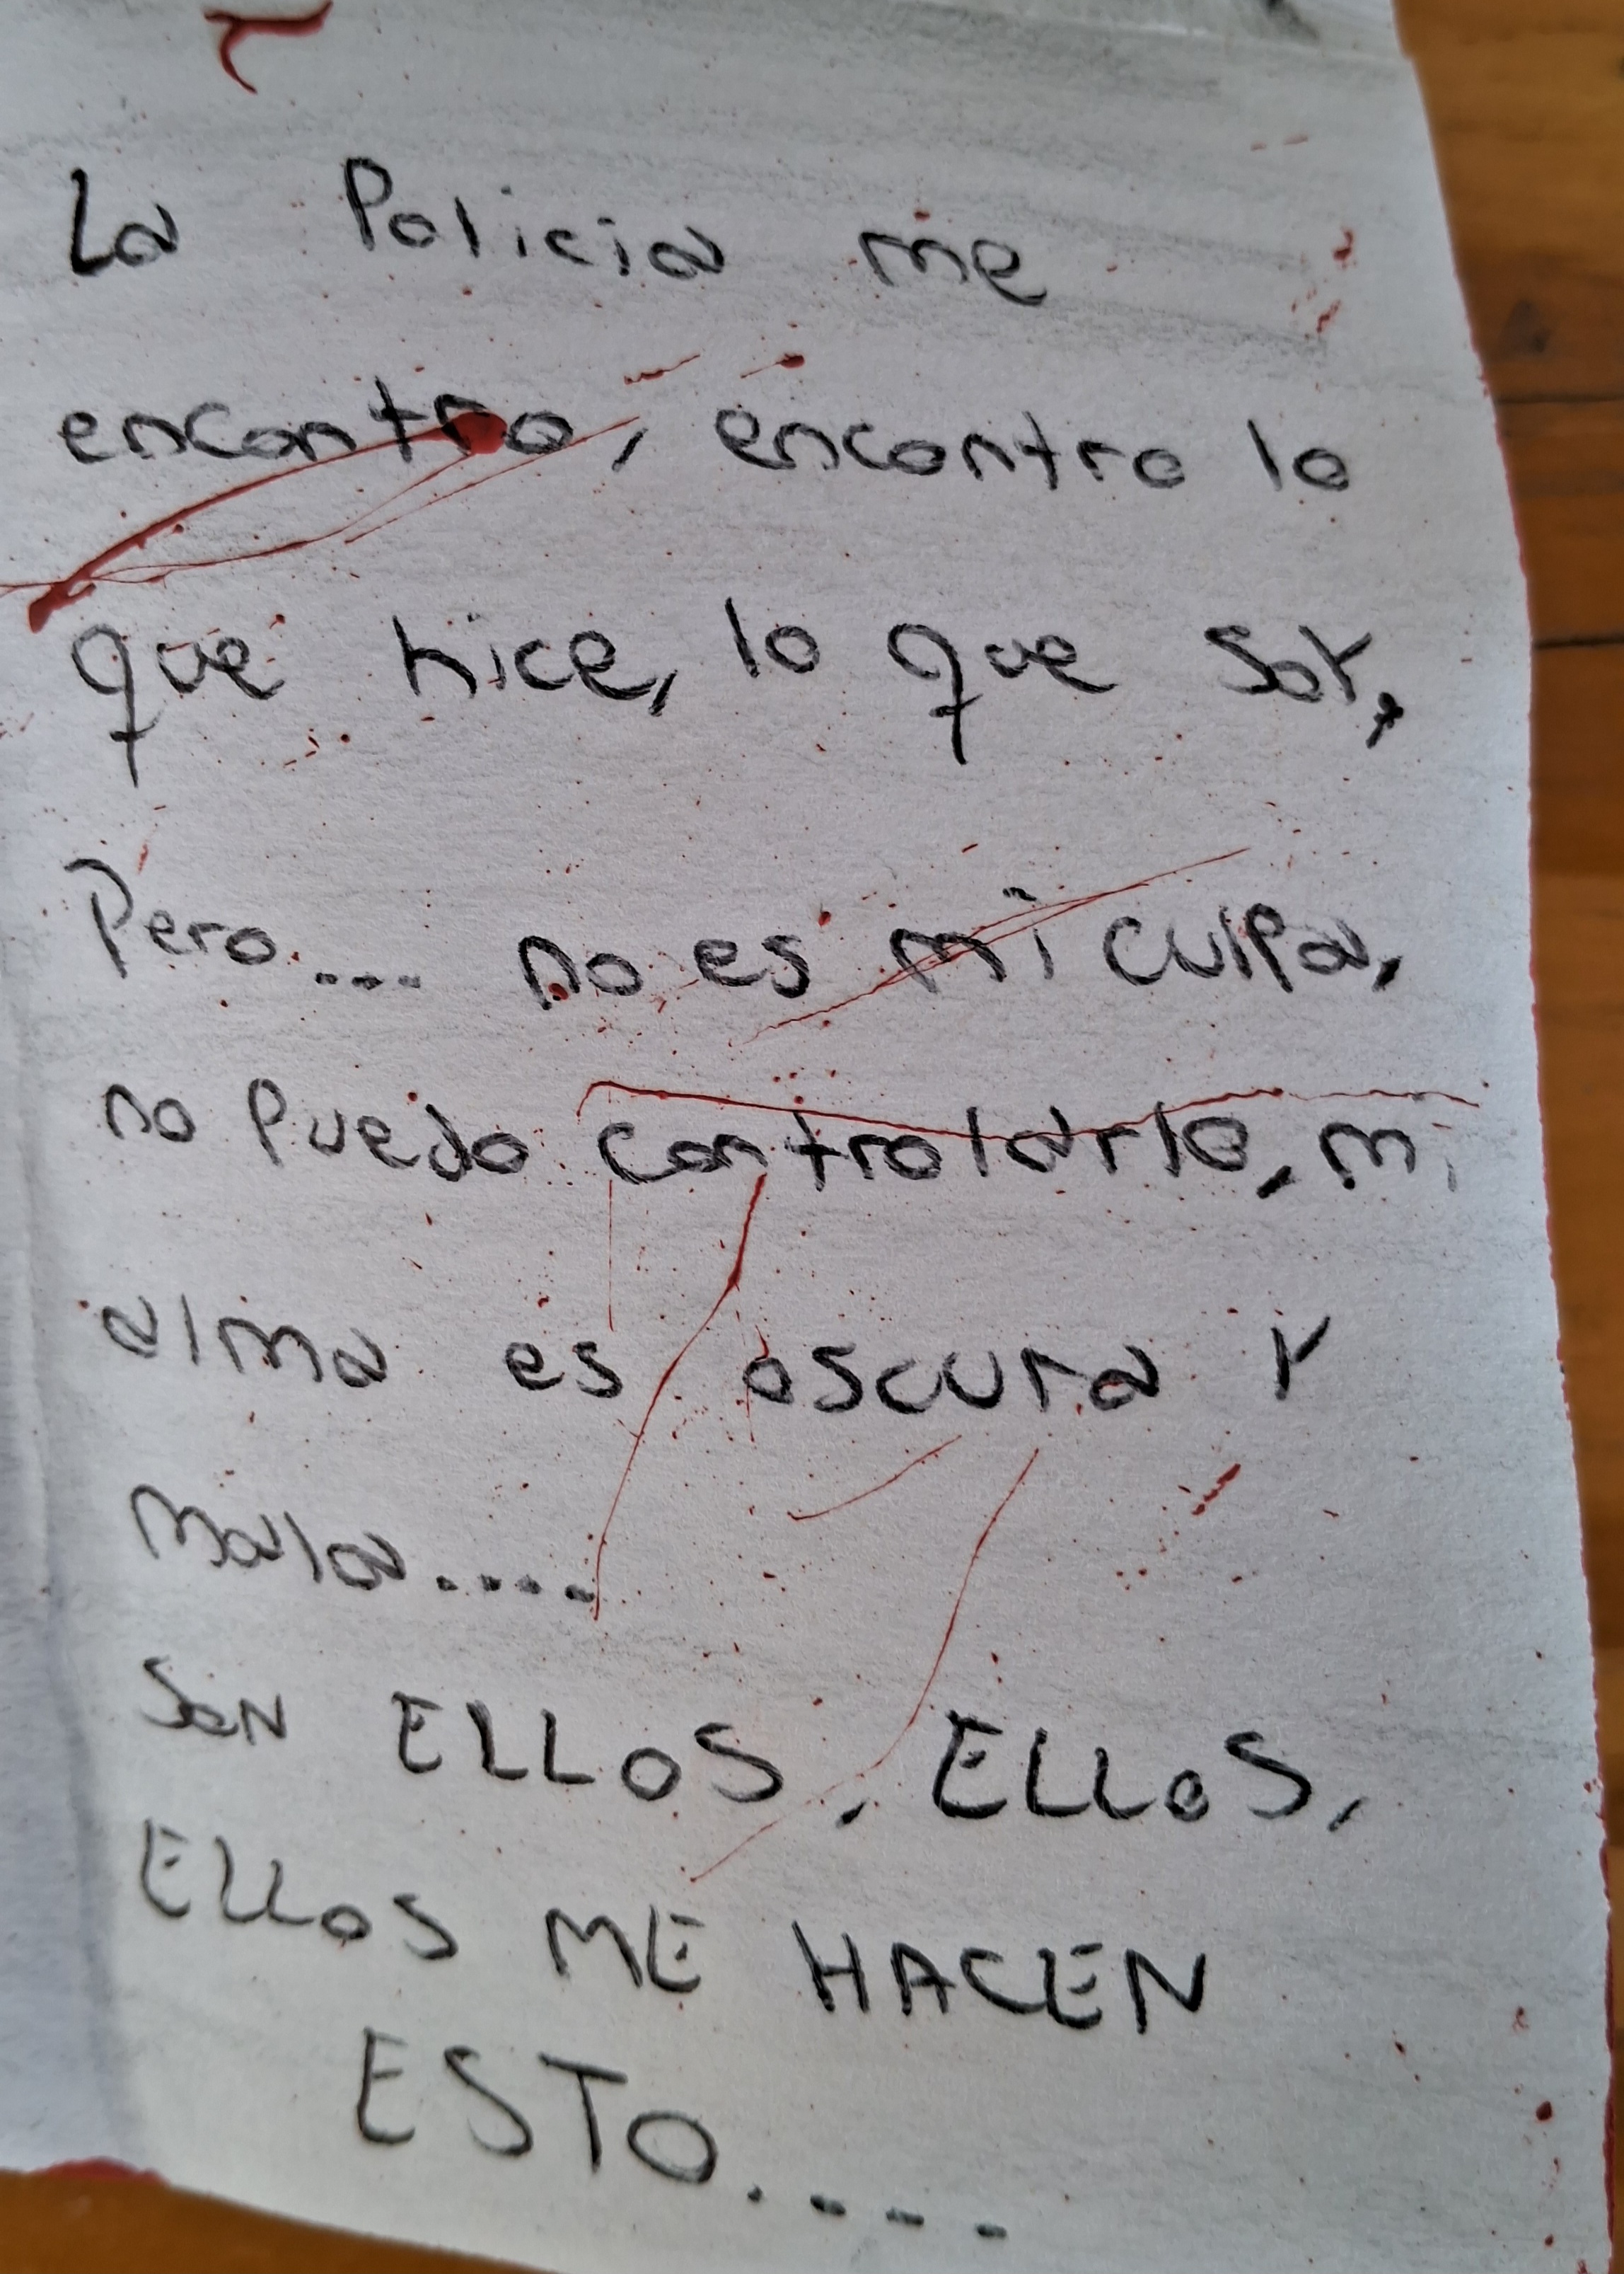 La Policia me
encontro, encontro lo
que hice, lo que soy,
Pero.... no es mi culpa,
no Puedo controlarlo, mi
alma es oscura y
mala.....
Son ELLOS, ELLOS,
ELLOS ME HACEN
ESTO....